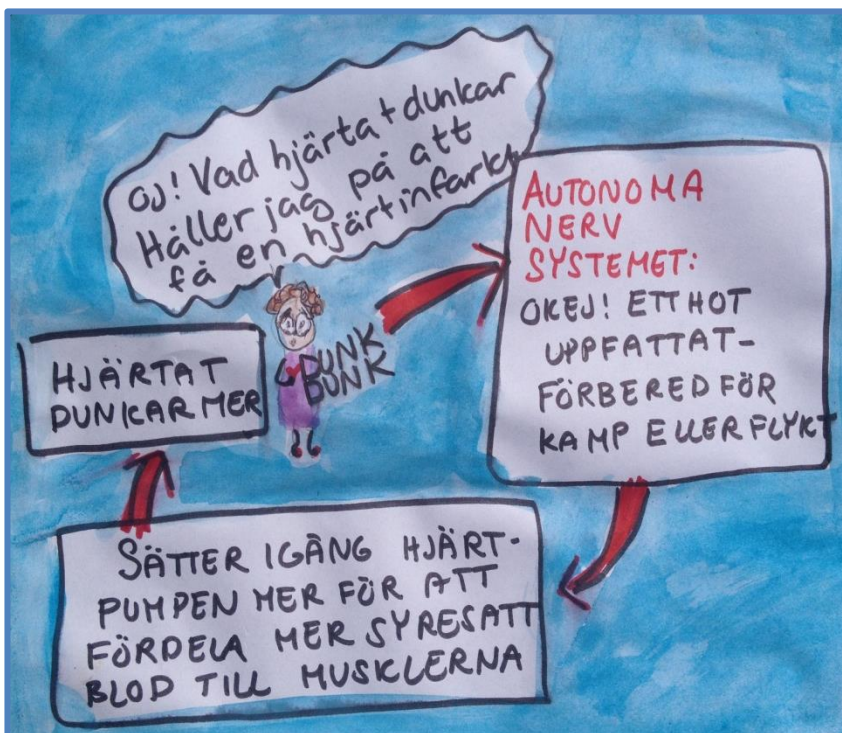 OJ! Vad hjärtat dunkar
Håller jag på att
få en hjärtinfarkt
DUNK
DUNK
AUTONOMA
NERV
SYSTEMET:
OKEJ! ETT HOT
UPPFATTAT-
FÖRBERED FÖR
KAMP ELLER FLYKT
SÄTTER IGÅNG HJÄRT-
PUMPEN MER FÖR ATT
FÖRDELA MER SYRESATT
BLOD TILL MUSKLERNA
HJÄRTAT
DUNKAR MER